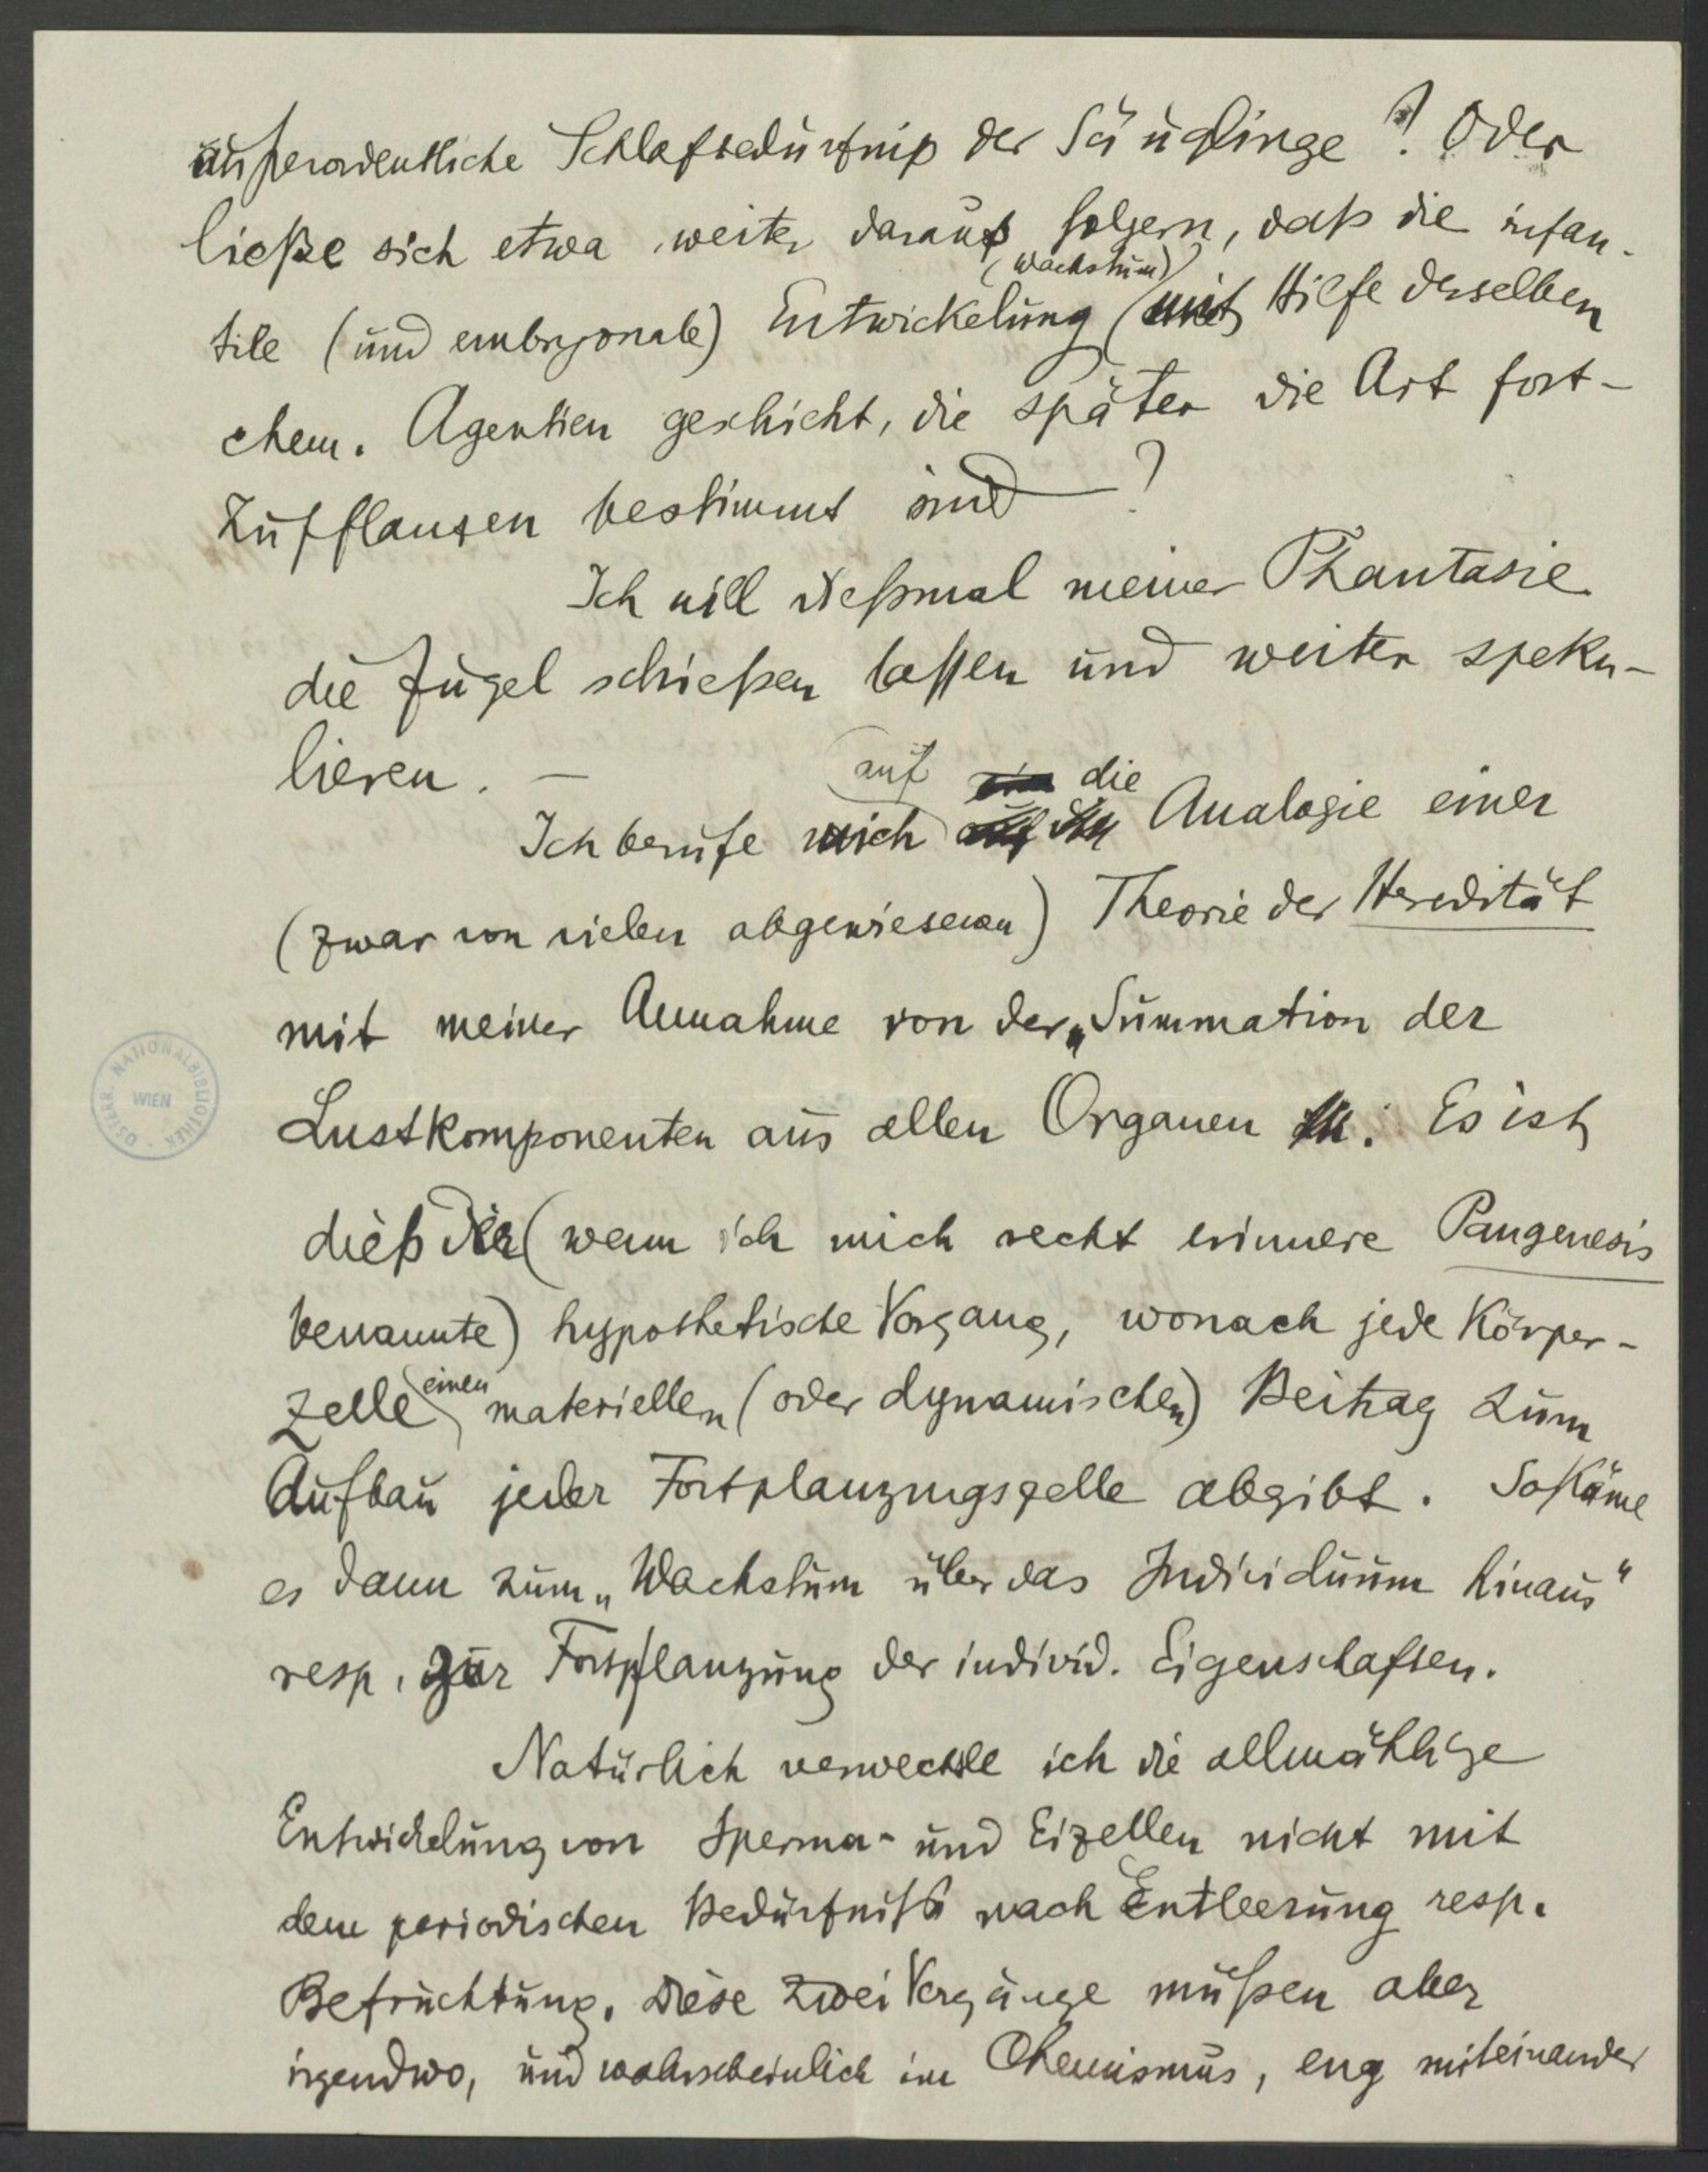 außerordentliche Schlafbedürfniß der Säuglinge? Oder
ließe sich etwa weiter daraus folgern, daß die infan-
(Wachstum)
tile (und embryonale) Entwickelung mit Hilfe derselben
chem. Agentien geschieht, die später die Art fort-
zupflanzen bestimmt sind?
Ich will dießmal meiner Phantasie
die Zügel schießen lassen und weiter speku-
lieren. –
auf die
Ich berufe mich Analogie einer
(zwar von vielen abgewiesenen) Theorie der Heredität
mit meiner Annahme von der „Summation der
Lustkomponenten aus allen Organen. Es ist
dieß der (wenn ich mich recht erinnere Pangenesis
benannte) hypothetische Vorgang, wonach jede Körper-
zelle einen materiellen (oder dynamischen) Beitrag zum
Aufbau jeder Fortplanzungszelle abgibt. So käme
es dann zum „Wachstum über das Individuum hinaus“
resp. zur Fortpflanzung der individ. Eigenschaften.
Natürlich verwechsle ich die allmählige
Entwickelung von Sperma- und Eizellen nicht mit
dem periodischen Bedürfniß nach Entleerung resp.
Befruchtung. Diese zwei Vorgänge müßen aber
irgendwo, und wahrscheinlich im Chemismus, eng miteinander
ÖSTERR. NATIONALBIBLIOTHEK
WIEN